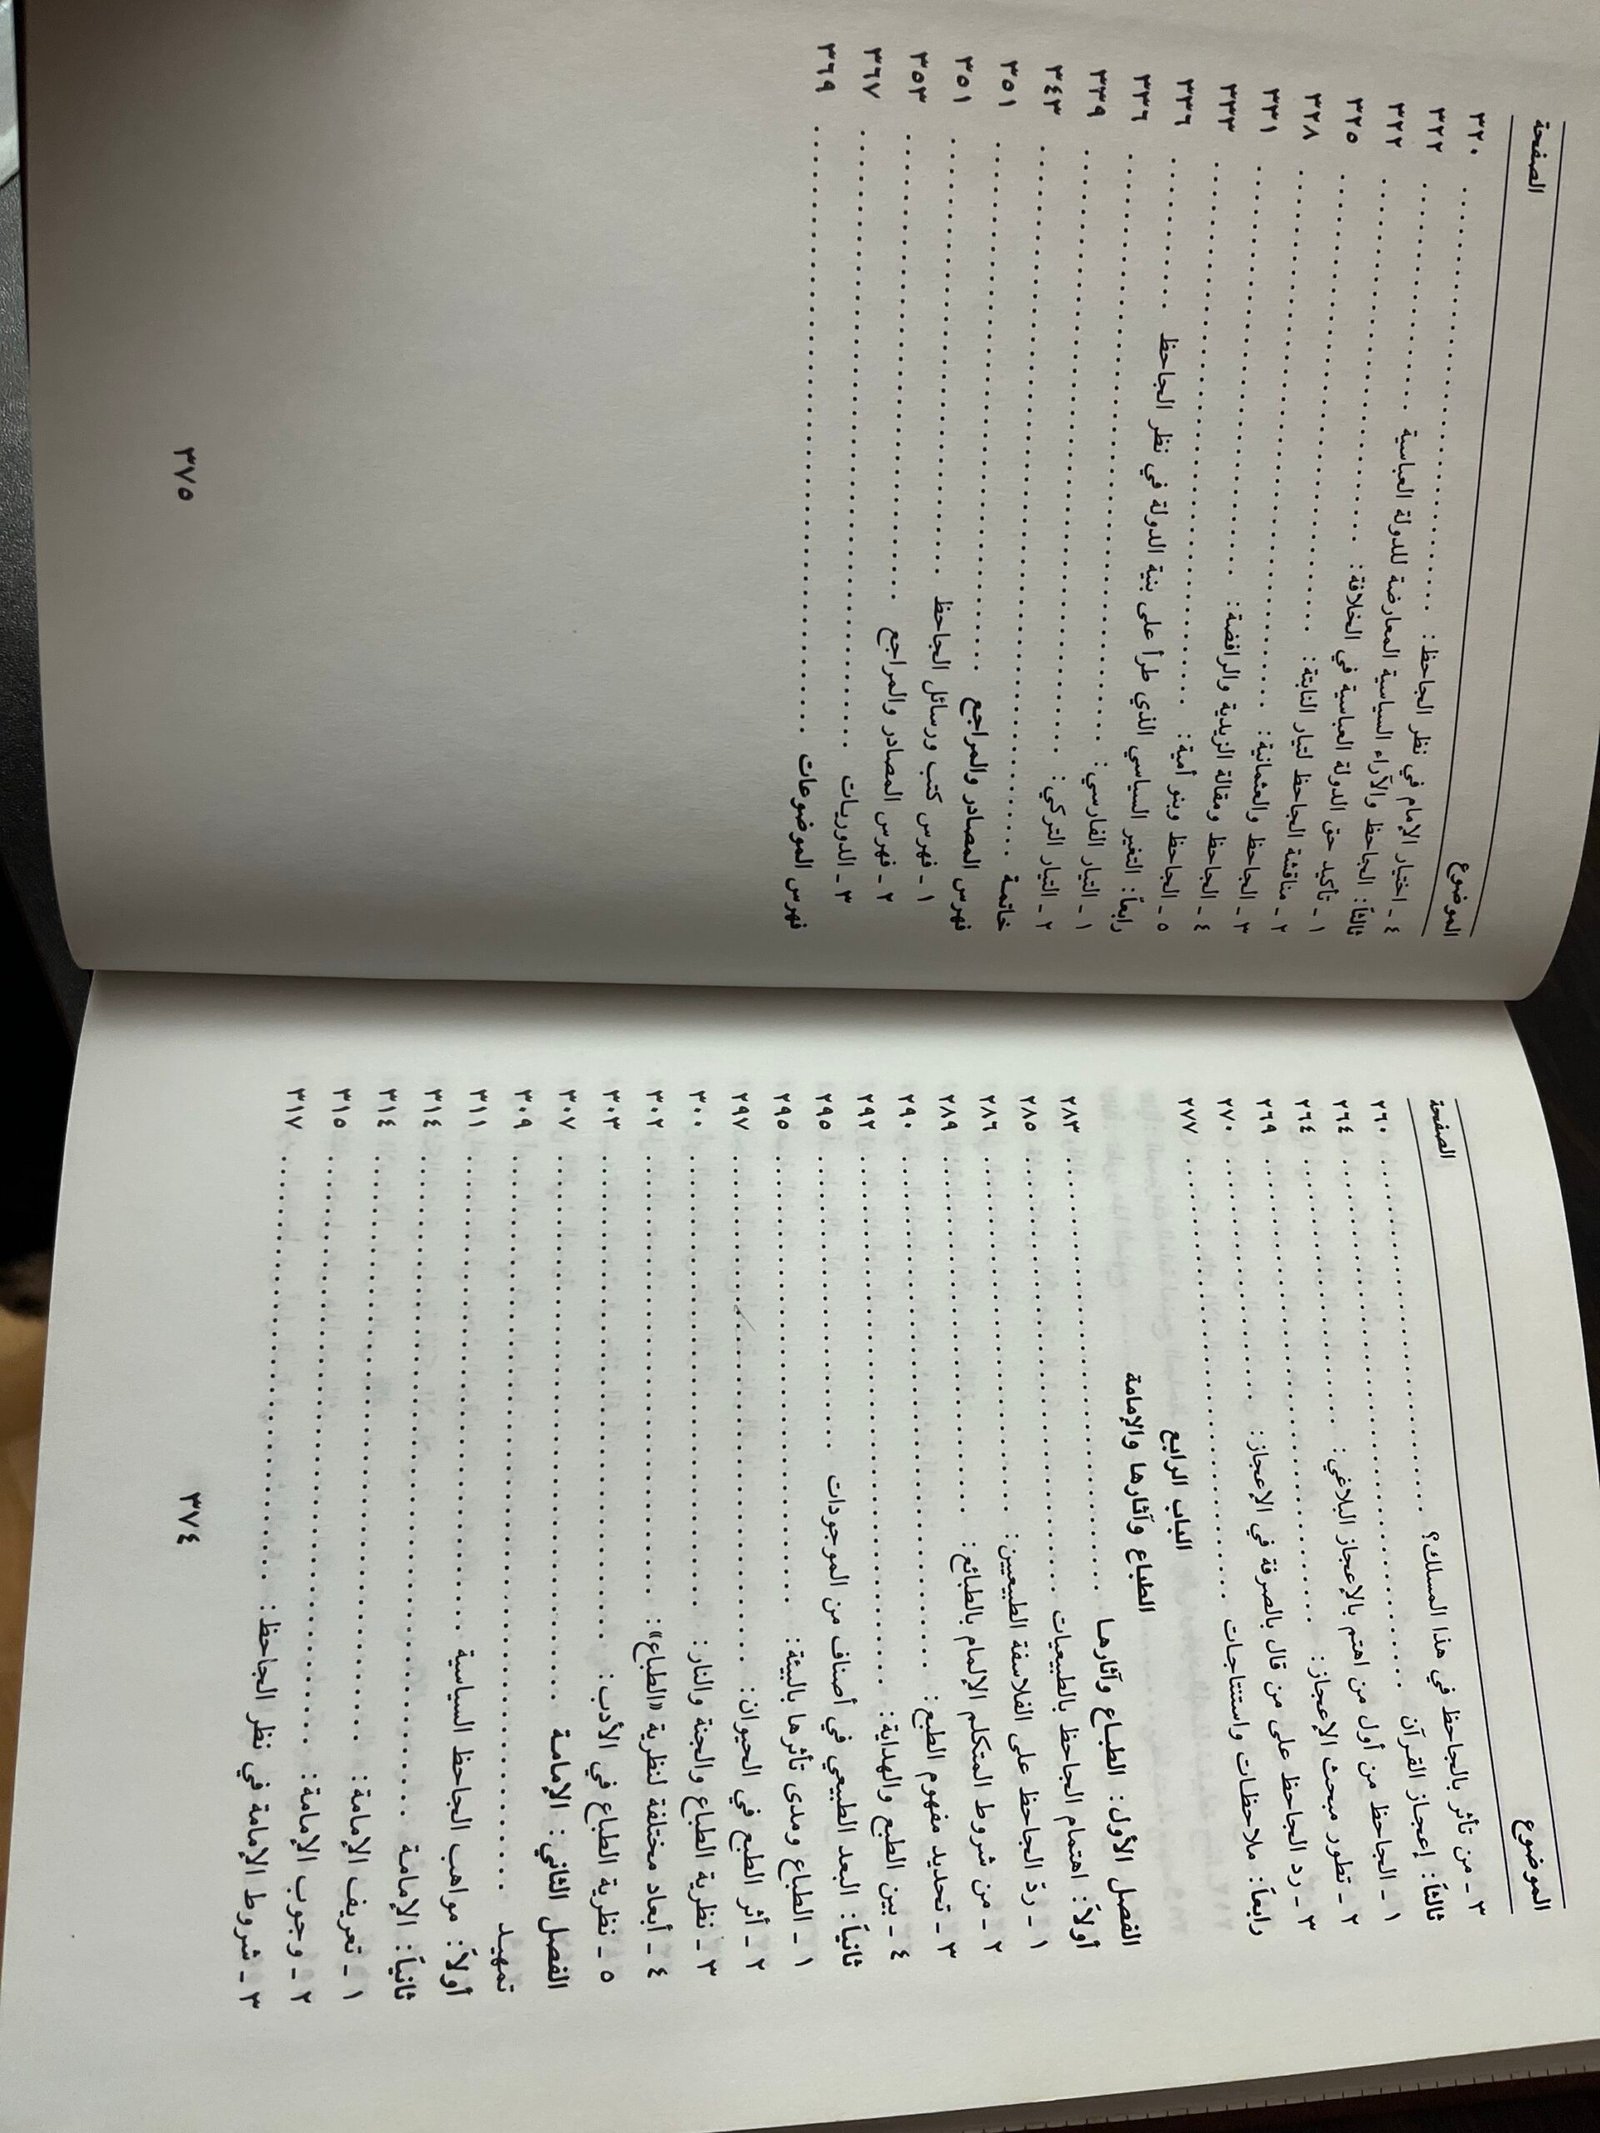 الموضوع الصفحة
٣ ـ من تأثر بالجاحظ في هذا المسلك؟ ٢٦٠
ثالثاً: إعجاز القرآن ٢٦٤
١ ـ الجاحظ من أول من اهتم بالإعجاز البلاغي: ٢٦٤
٢ ـ تطور مبحث الإعجاز: ٢٦٩
٣ ـ رد الجاحظ على من قال بالصرفة في الإعجاز: ٢٧٠
رابعاً: ملاحظات واستنتاجات ٢٧٧
الباب الرابع
الطباع وآثارها والإمامة
الفصل الأول: الطباع وآثارها ٢٨٣
أولاً: اهتمام الجاحظ بالطبيعيات ٢٨٥
١ ـ ردّ الجاحظ على الفلاسفة الطبيعيين: ٢٨٦
٢ ـ من شروط المتكلم الإلمام بالطبائع: ٢٨٩
٣ ـ تحديد مفهوم الطبع: ٢٩٠
٤ ـ بين الطبع والهداية: ٢٩٢
ثانياً: البعد الطبيعي في أصناف من الموجودات ٢٩٥
١ ـ الطباع ومدى تأثرها بالبيئة: ٢٩٥
٢ ـ أثر الطبع في الحيوان: ٢٩٧
٣ ـ نظرية الطباع والجنة والنار: ٣٠٠
٤ ـ أبعاد مختلفة لنظرية «الطباع»: ٣٠٢
٥ ـ نظرية الطباع في الأدب: ٣٠٣
الفصل الثاني: الإمامة ٣٠٧
تمهيد ٣٠٩
أولاً: مواهب الجاحظ السياسية ٣١١
ثانياً: الإمامة ٣١٤
١ ـ تعريف الإمامة: ٣١٤
٢ ـ وجوب الإمامة: ٣١٥
٣ ـ شروط الإمامة في نظر الجاحظ: ٣١٧
٣٧٤
الموضوع الصفحة
٤ ـ اختيار الإمام في نظر الجاحظ: ٣٢٠
ثالثاً: الجاحظ والآراء السياسية المعارضة للدولة العباسية ٣٢٢
١ ـ تأكيد حق الدولة العباسية في الخلافة: ٣٢٢
٢ ـ مناقشة الجاحظ لتيار النابتة: ٣٢٥
٣ ـ الجاحظ والعثمانية: ٣٢٨
٤ ـ الجاحظ ومقالة الزيدية والرافضة: ٣٣١
٥ ـ الجاحظ وبنو أمية: ٣٣٣
رابعاً: التغير السياسي الذي طرأ على بنية الدولة في نظر الجاحظ ٣٣٦
١ ـ التيار الفارسي: ٣٣٦
٢ ـ التيار التركي: ٣٣٩
خاتمة ٣٤٣
فهرس المصادر والمراجع ٣٥١
١ ـ فهرس كتب ورسائل الجاحظ ٣٥١
٢ ـ فهرس المصادر والمراجع ٣٥٣
٣ ـ الدوريات ٣٦٧
فهرس الموضوعات ٣٦٩
٣٧٥